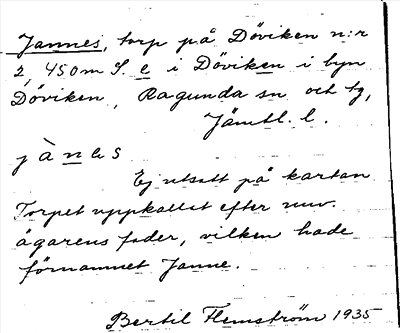 Jannes, torp på Döviken n:r
2, 450 m S. e i Döviken i byn
Döviken, Ragunda sn och tg,
Jämtl. l.
jànes
Ej utsatt på kartan
Torpet uppkallat efter nuv.
ägarens fader, vilken hade
förnamnet Janne.
Bertil Flemström 1935